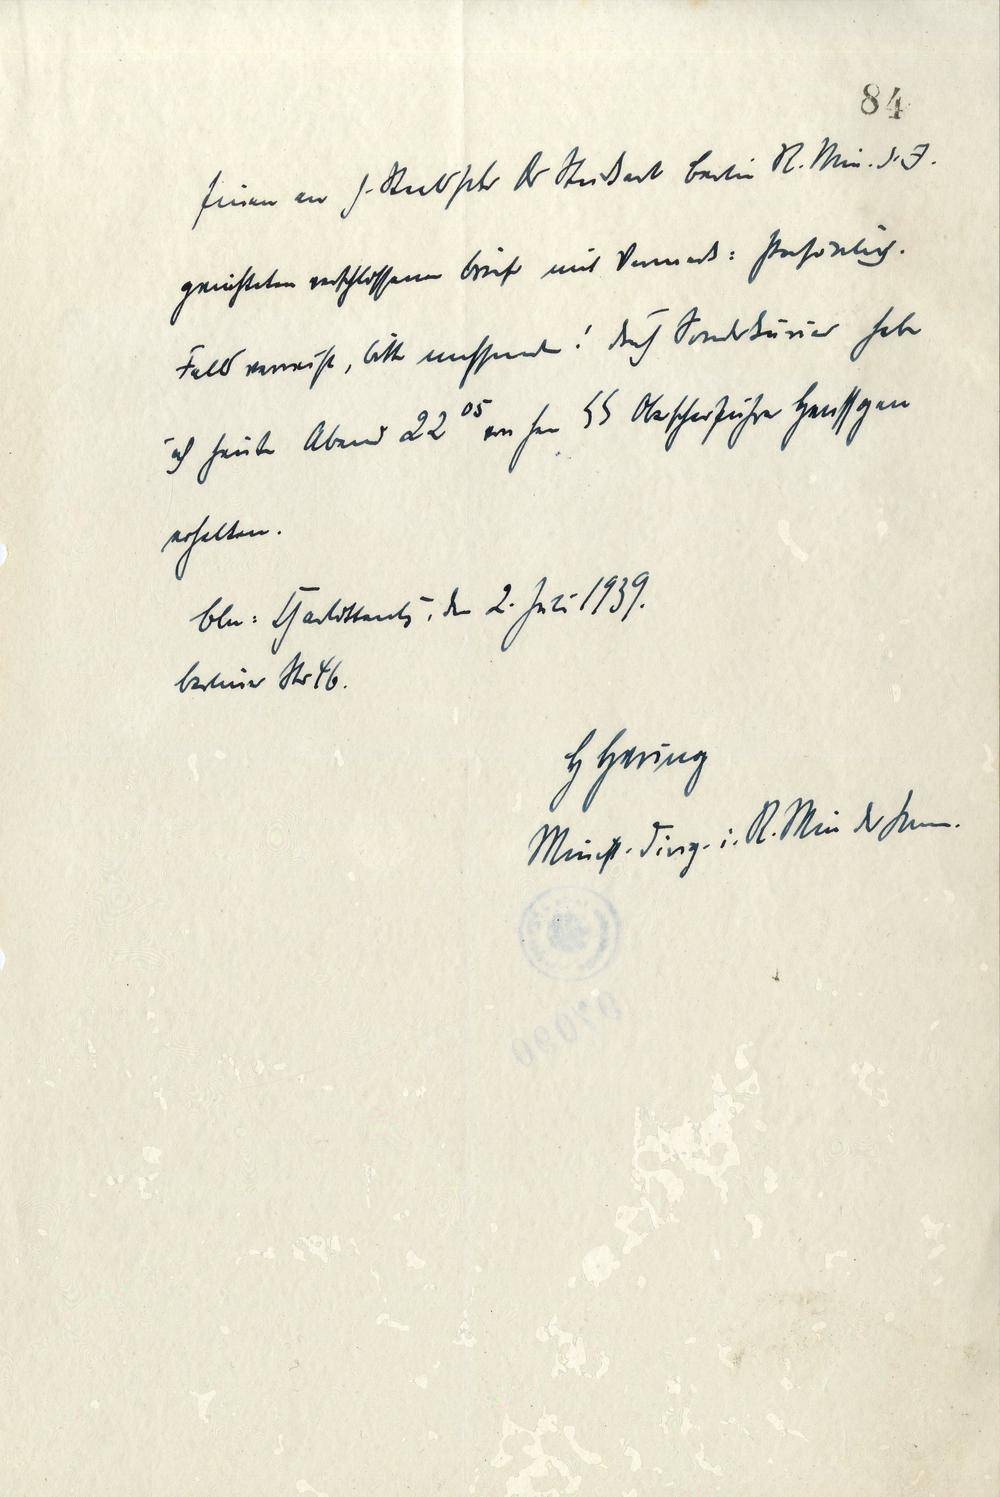 84
Einen an H. Staatssekr Dr Stuckart Berlin R. Min. d. I.
gerichteten verschlossenen Brief mit Vermerk: Persönlich.
Falls verreist, bitte nachsenden! durch Sonderkurier habe
ich heute Abend 22⁰⁵ von SS Oberscharführer Heussgen
erhalten.
Bln: Charlottenbg, den 2. Juli 1939.
Berliner Str 46.
H Hering
Minist. Dirig. i. R. Min des Inn.